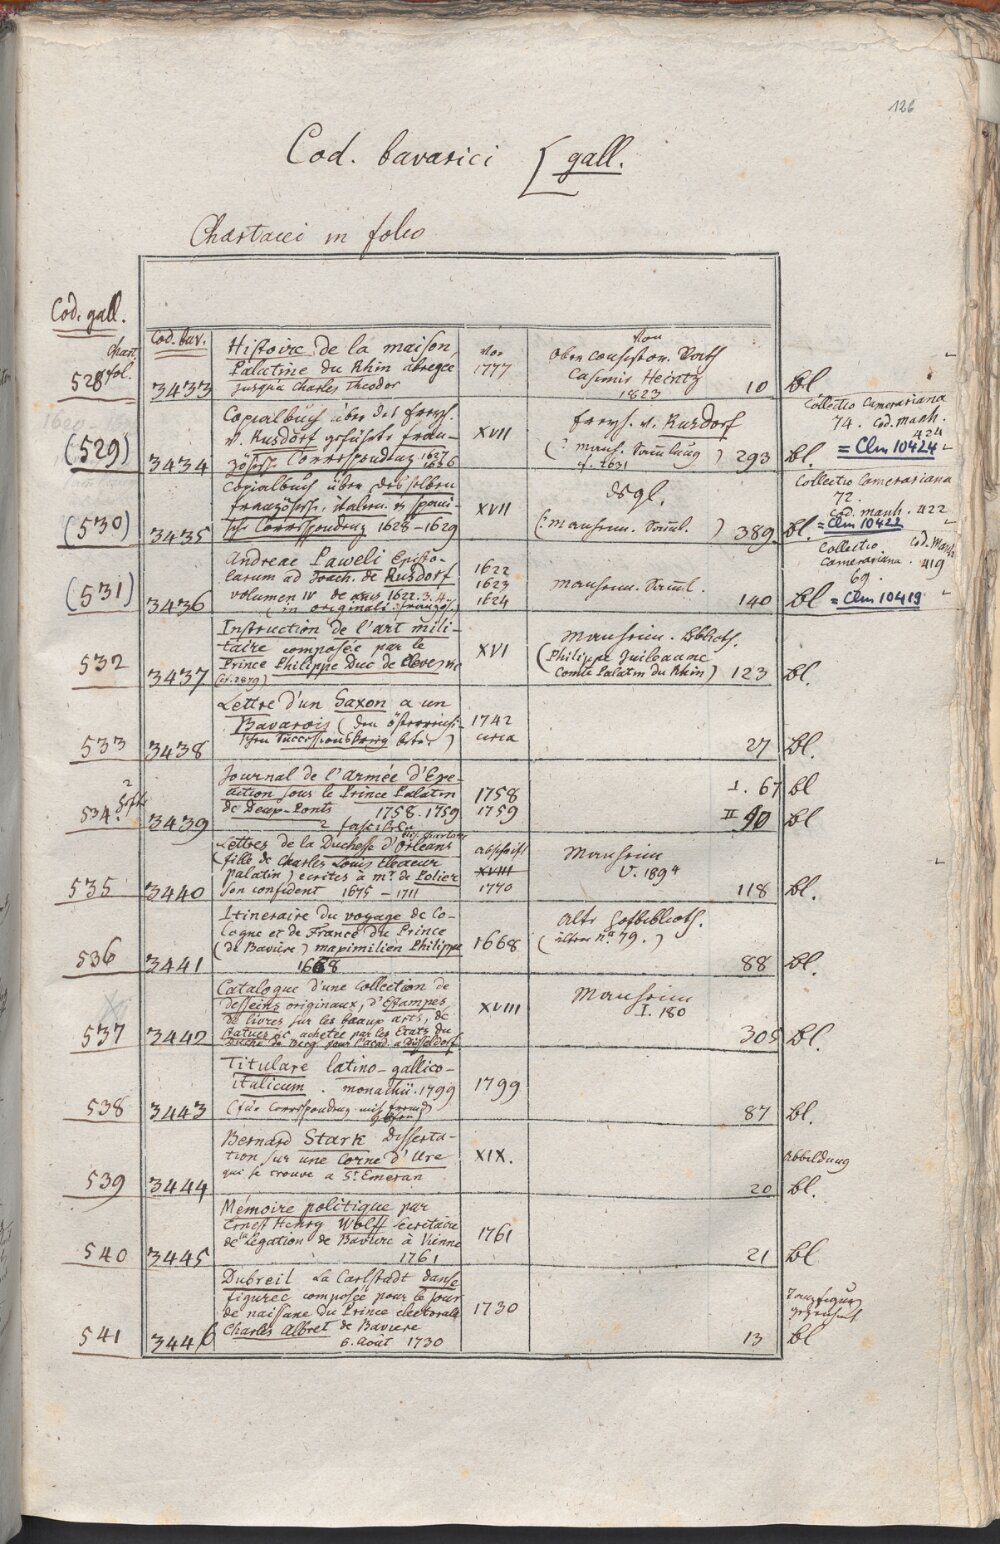 126
Cod. bavarici [gall.
Chartacei in folio
Cod. gall.
Chart.
fol.
528
Cod. bav.
3433
Histoire de la maison
Palatine du Rhin abregée
jusqu'a Charles Theodor
vor
1777
Von
Ober Consistor. Rath
Casimir Heintz
1823
10 Bl
(529)
3434
Copialbuch über des freyh.
v. Rusdorf geführte fran-
zösisch. Correspondenz 1627
1626
XVII
freyh. v. Rusdorf
(manh. Samlung)
293 Bl.
Collectio Camerariana
74. Cod. manh.
424
= Clm 10424
(530)
3435
Copialbuch über desselben
französ., italien. u spani-
sche Correspondenz 1628-1629
XVII
desgl.
(manheim. Saml.)
389 Bl.
Collectio Camerariana
72.
Cod. manh. 422
= Clm 10422
(531)
3436
Andreae Paweli Episto-
larum ad Joach. de Rusdorf
volumen IV de anno 1622. 3. 4.
(in originali. französ.)
1622
1623
1624
manheim. Saml.
140 Bl
Collectio Cod. Manh.
Camerariana. 419
69.
= Clm 10419
532
3437
Instruction de l'art mili-
taire composée par le
Prince Philippe Duc de Cleve
XVI
Manheim. Biblioth.
(Philippe Guillaume
Comte Palatin du Rhin)
123 Bl.
533
3438
Lettre d'un Saxon a un
Bavarois (den österreichi-
schen Successionskrieg betr.)
1742
circa
27 Bl.
534. 2 Hefte
3439
Journal de l'armée d'Exe-
cution sous le Prince Palatin
de Deux-Ponts 1758. 1759
2 fascikel
1758
1759
I. 67 Bl
II 90 Bl
535
3440
Lettres de la Duchesse d'Orleans
(fille de Charles Louis Electeur
palatin) ecrites à Mr. de Polier
son confident 1675 - 1711
Abschrift
XVIII
1770
Manheim
V. 189
118 Bl.
536
3441
Itineraire du voyage de Co-
logne et de France du Prince
(de Baviere) Maximilien Philippe
1668
1668
Alte Hofbiblioth.
(ältere no. 79.)
88 Bl.
537
3442
Catalogue d'une Collection de
desseins originaux, d'Estampes,
de livres sur les beaux arts, de
statues &c achetée par les Etats du
Duché de Berg pour l'acad. a Düsseldorf
XVIII
Manheim
I. 180
305 Bl.
538
3443
Titulare latino-gallico-
italicum. monachii. 1799
(für Correspondenz mit fremden
1799
87 Bl.
539
3444
Bernard Stark Disserta-
tion sur une Corne d'Ure
qui se trouve a St Emeran
XIX.
Abbildung
20 Bl.
540
3445
Mémoire politique par
Ernest Henry Wolff Secretaire
de la Legation de Baviere à Vienne
1761
1761
21 Bl
541
3446
Dubreil La Carlstadt danse
figuree composée pour le jour
de naissance du Prince electorale
Charles Albret de Baviere
6. août 1730
1730
Tanzfiguren
gezeichnet
13 Bl